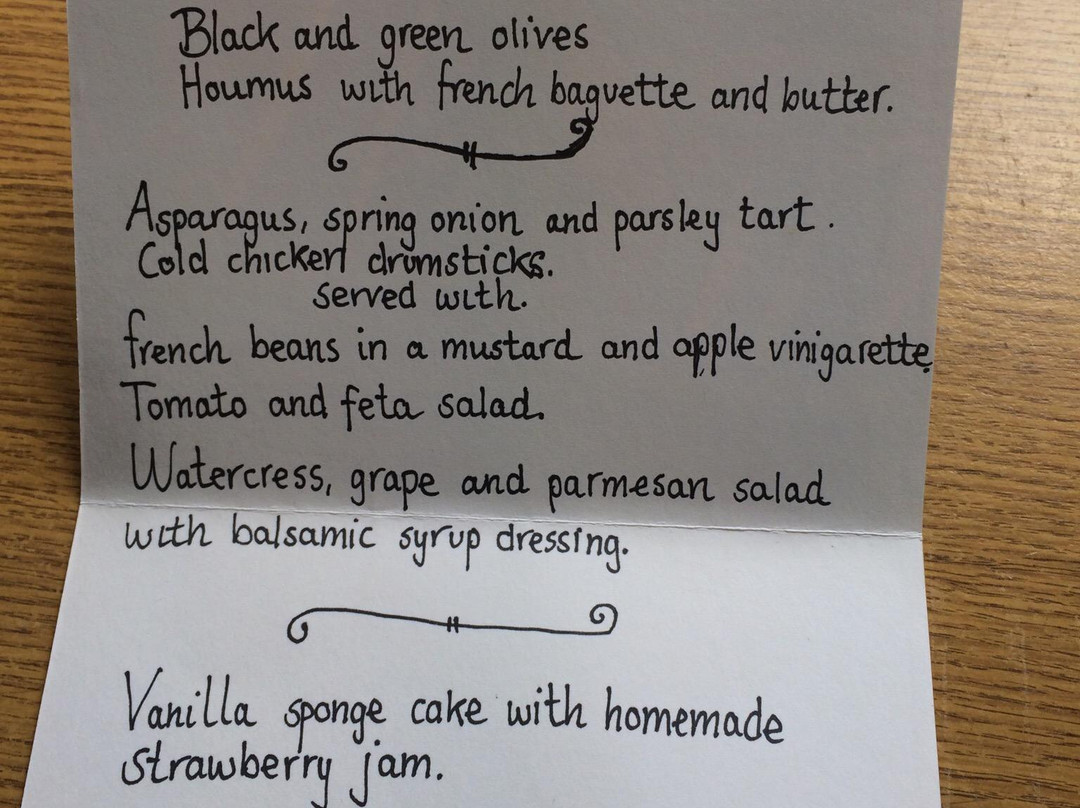 Black and green olives
Houmus with french baguette and butter.
Asparagus, spring onion and parsley tart.
Cold chicken drumsticks.
served with.
french beans in a mustard and apple vinigarette
Tomato and feta salad.
Watercress, grape and parmesan salad
with balsamic syrup dressing.
Vanilla sponge cake with homemade
strawberry jam.